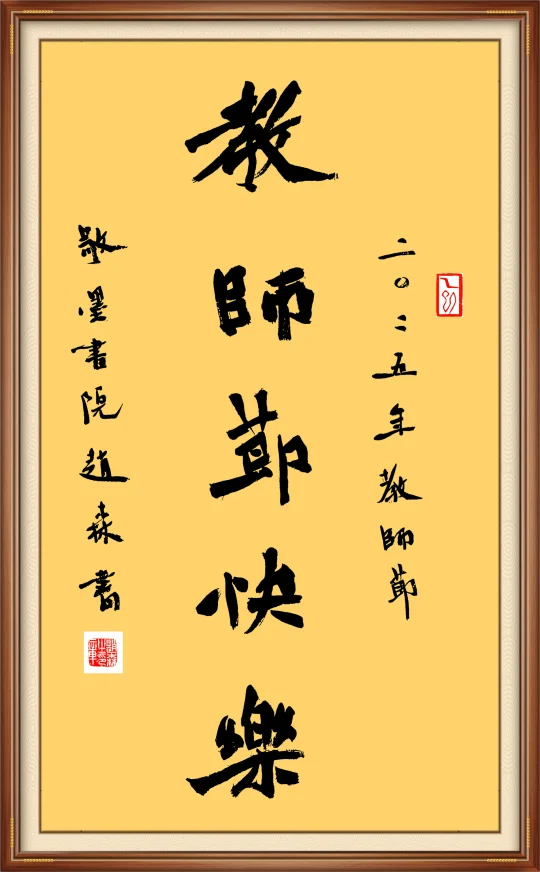 二〇二五年教師節
教師節快樂
敬墨書院趙森書